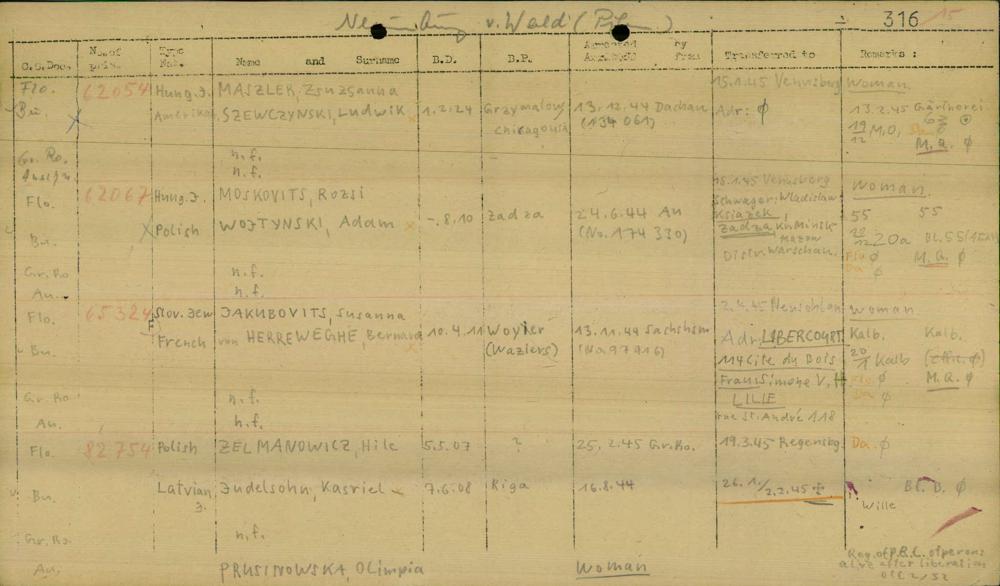 v. Wald (
316 15
C.C.Doc. No. of pris. Type Nat. Name and Surname B.D. B.P. Arrested by from Transferred to Remarks :
Flo. 62054 Hung. J. MASZLER, Zsuzsanna 15.1.45 Vennsburg Woman
Bu. Amerikan. SZEWCZYNSKI, Ludwik 1.2.24 Grzymalow, 13.12.44 Dachau Adr: ∅ 13.2.45 Gärtnerei
(134 061)
19/12 M.O, Da. M.Q. ∅
Gr. Ro. n.f.
n.f.
Flo. 62067 Hung. J. MOSKOVITS, Rozsi 15.1.45 Vennsberg Woman
Schwager, Wladislaw
Bu. Polish WOJTYNSKI, Adam -.8.10 Zadza 24.6.44 Au Ksiazek, 55 55
(No. 174 330) Zadza, Kr. Minsk
Mazow 20/12 20a Bl. 55/
Distr. Warschau. Flo ∅ M.Q. ∅
Gr. Ro n.f. Da ∅
Au. n.f.
Flo. 65324 Slov. Jew JAKUBOVITS, Susanna 2.4.45 Woman
Bu. F French van HERREWEGHE, Bernard 10.4.11 13.11.44 Sachshsn Adr. LIBERCOURT Kalb. Kalb.
(Waziers) (No 97916) 114 Cite du Bois 20/1 Kalb
Frau: Simone V. H Flo ∅ M.Q. ∅
Gr. Ro n.f. LILLE Da ∅
Au. n.f. rue St. André 118
Flo. 82754 Polish ZELMANOWICZ, Hile 5.5.07 ? 25.2.45 Gr.Ro. 19.3.45 Regensbg. Da. ∅
Bu. Latvian J. Judelsohn, Kasriel 7.6.08 Riga 16.8.44 26.1./2.2.45 ‡ Bl. B. ∅
Wille
Gr. Ro. n.f.
Au. PRUSINOWSKA, Olimpia Woman
alive after liberation